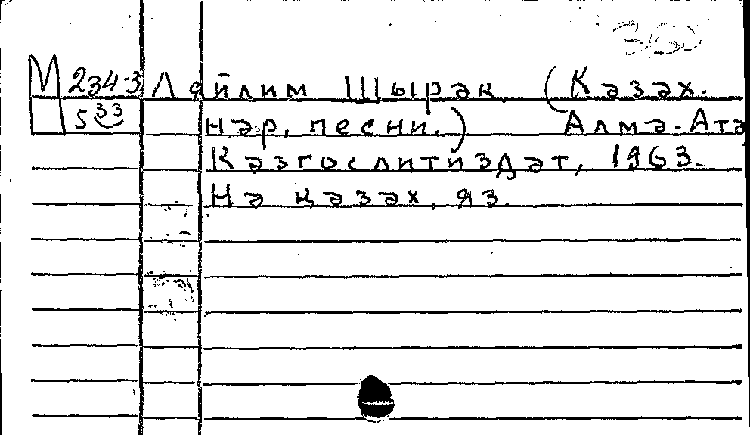 350
М 234-3 Ләйлим Шырақ (Казах.
5 33 нар. песни.) Алма-Ата
Казгослитиздат, 1963.
На казах. яз.